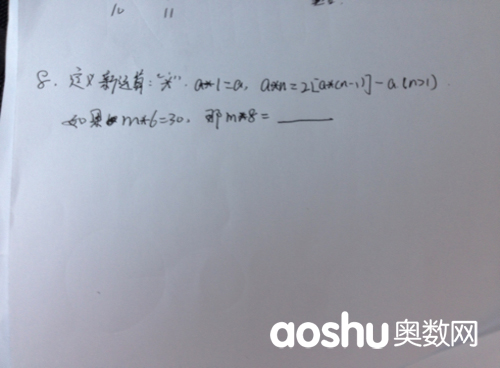 10 11
8. 定义新运算:"*". a*1=a, a*n=2[a*(n-1)]-a(n>1)
如果m*6=30, 那m*8=
aoshu奥数网